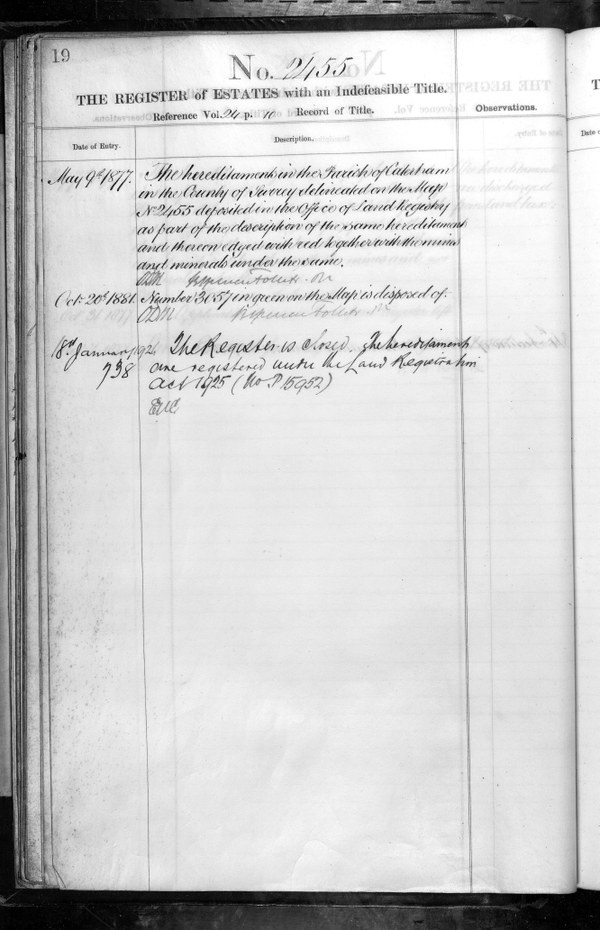 19
No. 2455
THE REGISTER of ESTATES with an Indefeasible Title.
Reference Vol. 24 p. 10 Record of Title.
Observations.
Date of Entry.
Description.
May 9th 1877. The hereditaments in the Parish of Caterham
in the County of Surrey delineated on the Map
No 2455 deposited in the Office of Land Registry
as part of the description of the same hereditaments
and thereon edged with red together with the mines
and minerals under the same.
Oct. 20th 1881. Number 3657 in green on the Map is disposed of.
18th January 1926 The Register is closed. The hereditaments
738 are registered under the Land Registration
Act 1925 (No P15952)